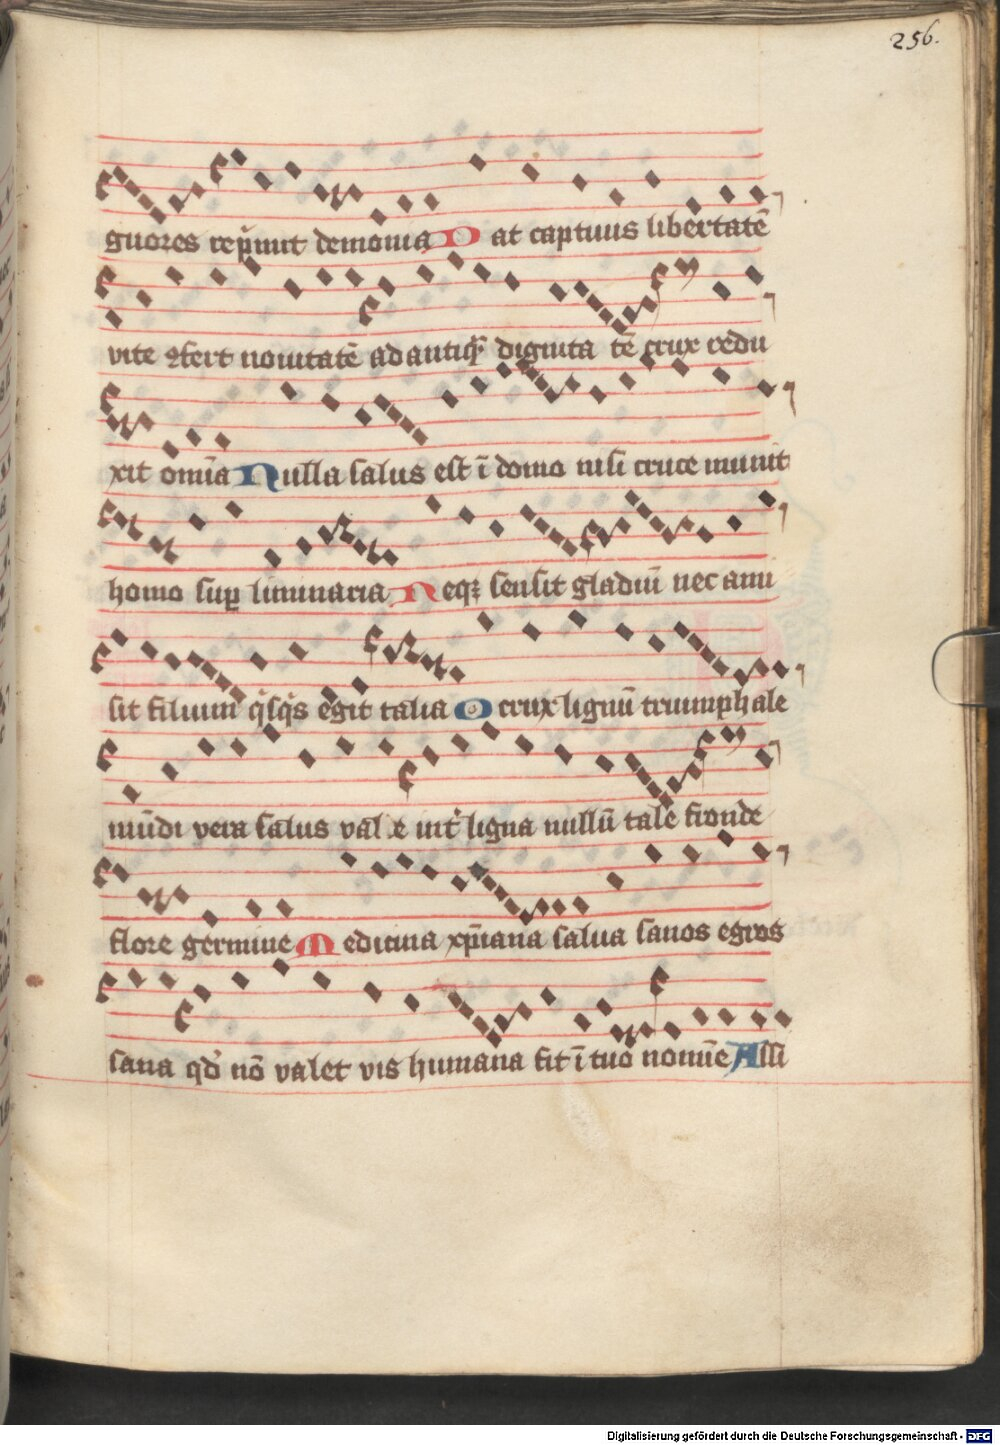 256.
guores rep̃mit demonia Dat captiuis libertatē
vite ꝯfert nouitatē ad antiq̃ dignitatē crux redu
xit omĩa Nulla salus est ĩ domo nisi cruce munit
homo suꝑ liminaria Neqꝫ sensit gladiũ nec ami
sit filium q̃sq̃s egit talia O crux lignũ triumphale
mũdi vera salus vale int̃ ligna nullũ tale fronde
flore germine Medicina xp̃iana salua sanos egros
sana qd̃ nõ valet vis humana fit ĩ tuo nomĩe Assi
Digitalisierung gefördert durch die Deutsche Forschungsgemeinschaft - DFG